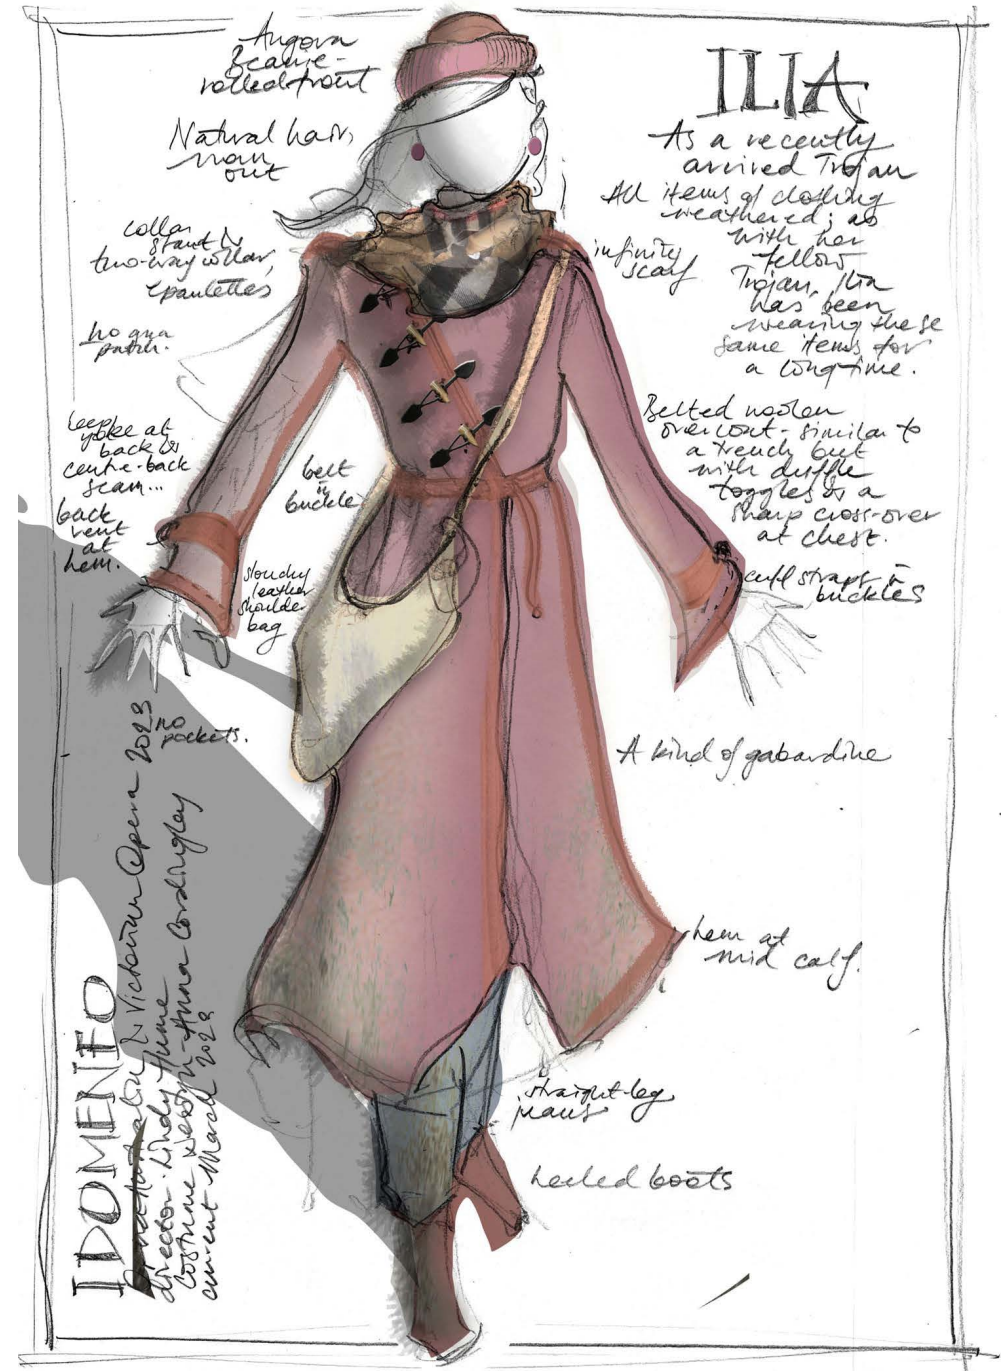 Angora
Beanie-
rolled front
Natural hair,
worn
out
collar
stand &
two-way collar,
epaulettes
no gun
patch.
keep
yoke at
back &
centre-back
seam...
back
vent
at
hem.
belt
in
buckle
slouchy
leather
shoulder
bag
no
pockets.
ILIA
As a recently
arrived Trojan
All items of clothing
weathered; as
with her
fellow
Trojan, Ilia
has been
wearing these
same items for
a long time.
infinity
scarf
Belted woolen
overcoat - similar to
a trench but
with duffle
toggles & a
sharp cross-over
at chest.
cuff straps in
buckles
A kind of gabardine
hem at
mid calf.
straight-leg
jeans
heeled boots
IDOMENEO
& Victorian Opera 2023
director - Lindy Hume
Costume design - Anna Cordingley
current March 2023